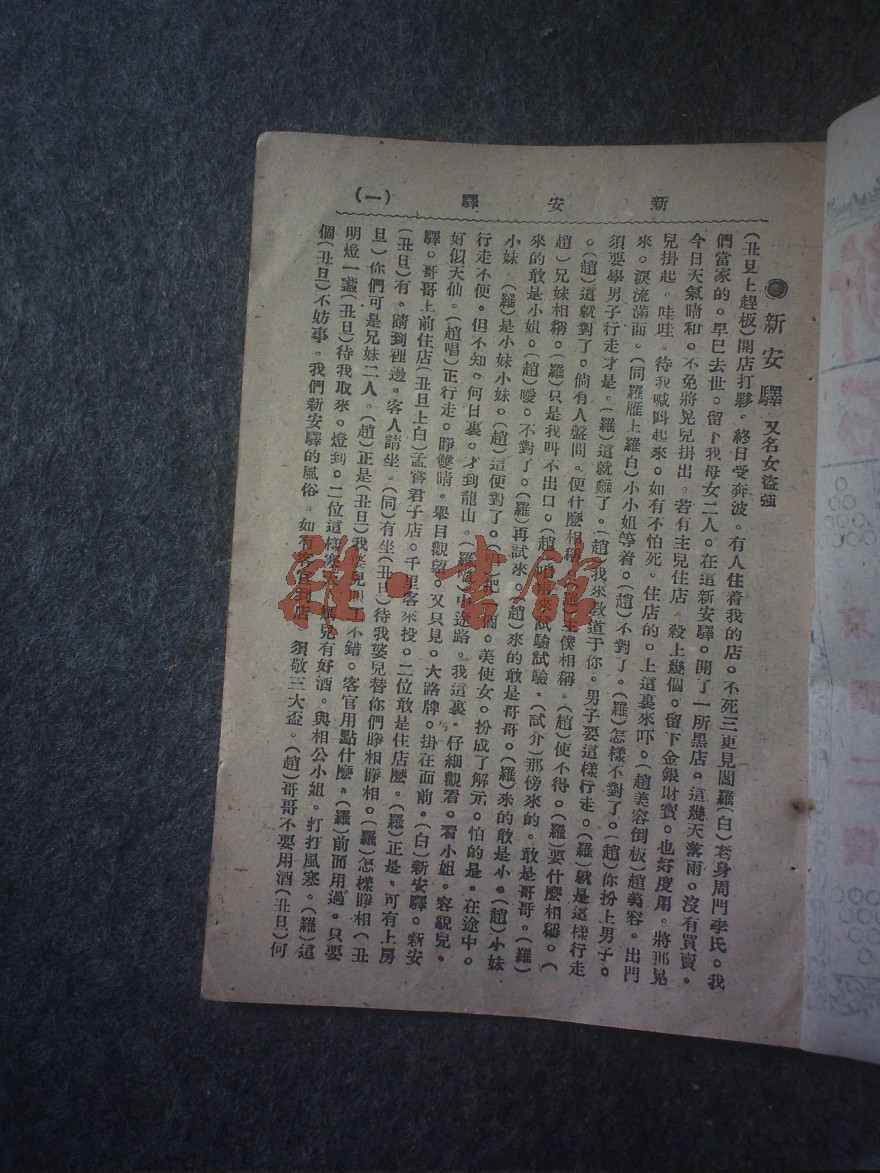 新安驛 (一)
新安驛 又名女盜強
(丑旦上趕板)開店打夥。終日受奔波。有人住着我的店。不死三更見閻羅(白)老身周門李氏。我
們當家的。早已去世。留下我母女二人。在這新安驛。開了一所黑店。這幾天落雨。沒有買賣。
今日天氣晴和。不免將晃兒掛出。若有主兒住店。殺上幾個。留下金銀財寶。也好度用。將那晃
兒掛起。哇哇。待我喊叫起來。如有不怕死。住店的。上這裏來吓。(趙美容倒板)趙美容。出門
來。淚流滿面。(同羅雁上羅白)小小姐等着。(趙)不對了。(羅)怎樣不對了。(趙)你扮上男子。
須要學男子行走才是。(羅)這就難了。(趙)我來教道于你。男子要這樣行走。(羅)就是這樣行走
。(趙)這就對了。倘有人盤問。便什麼相稱。(羅)主僕相稱。(趙)使不得。(羅)要什麼相稱。(
趙)兄妹相稱。(羅)只是我叫不出口。(趙)試驗試驗。(試介)那傍來的。敢是哥哥。(羅)
來的敢是小姐。(趙)噯。不對了。(羅)再試來。(趙)來的敢是哥哥。(羅)來的敢是小。(趙)小妹
小妹。(羅)是小妹小妹。(趙)這便對了。美使女。扮成了解元。怕的是。在途中。
行走不便。但不知。何日裏。才到龍山。(羅唱)中途路。我這裏。仔細觀看。看小姐。容貌兒。
好似天仙。(趙唱)正行走。睜雙睛。舉目觀望。又只見。大路牌。掛在面前。(白)新安驛。新安
驛。哥哥上前住店(丑旦上白)孟嘗君子店。千里客來投。二位敢是住店麼。(羅)正是。可有上房
(丑旦)有。請到裡邊。客人請坐。(同)有坐(丑旦)待我婆兒替你們睜相睜相。(羅)怎樣睜相(丑
旦)你們可是兄妹二人。(趙)正是(丑旦)我婆兒不錯。客官用點什麼。(羅)前面用過。只要
明燈一盞(丑旦)待我取來。燈到。二位這樣寒天。兒有好酒。與相公小姐。打打風寒。(羅)這
個(丑旦)不妨事。我們新安驛的風俗。如有客官到店。須敬三大盃。(趙)哥哥不要用酒(丑旦)何
雜·書館